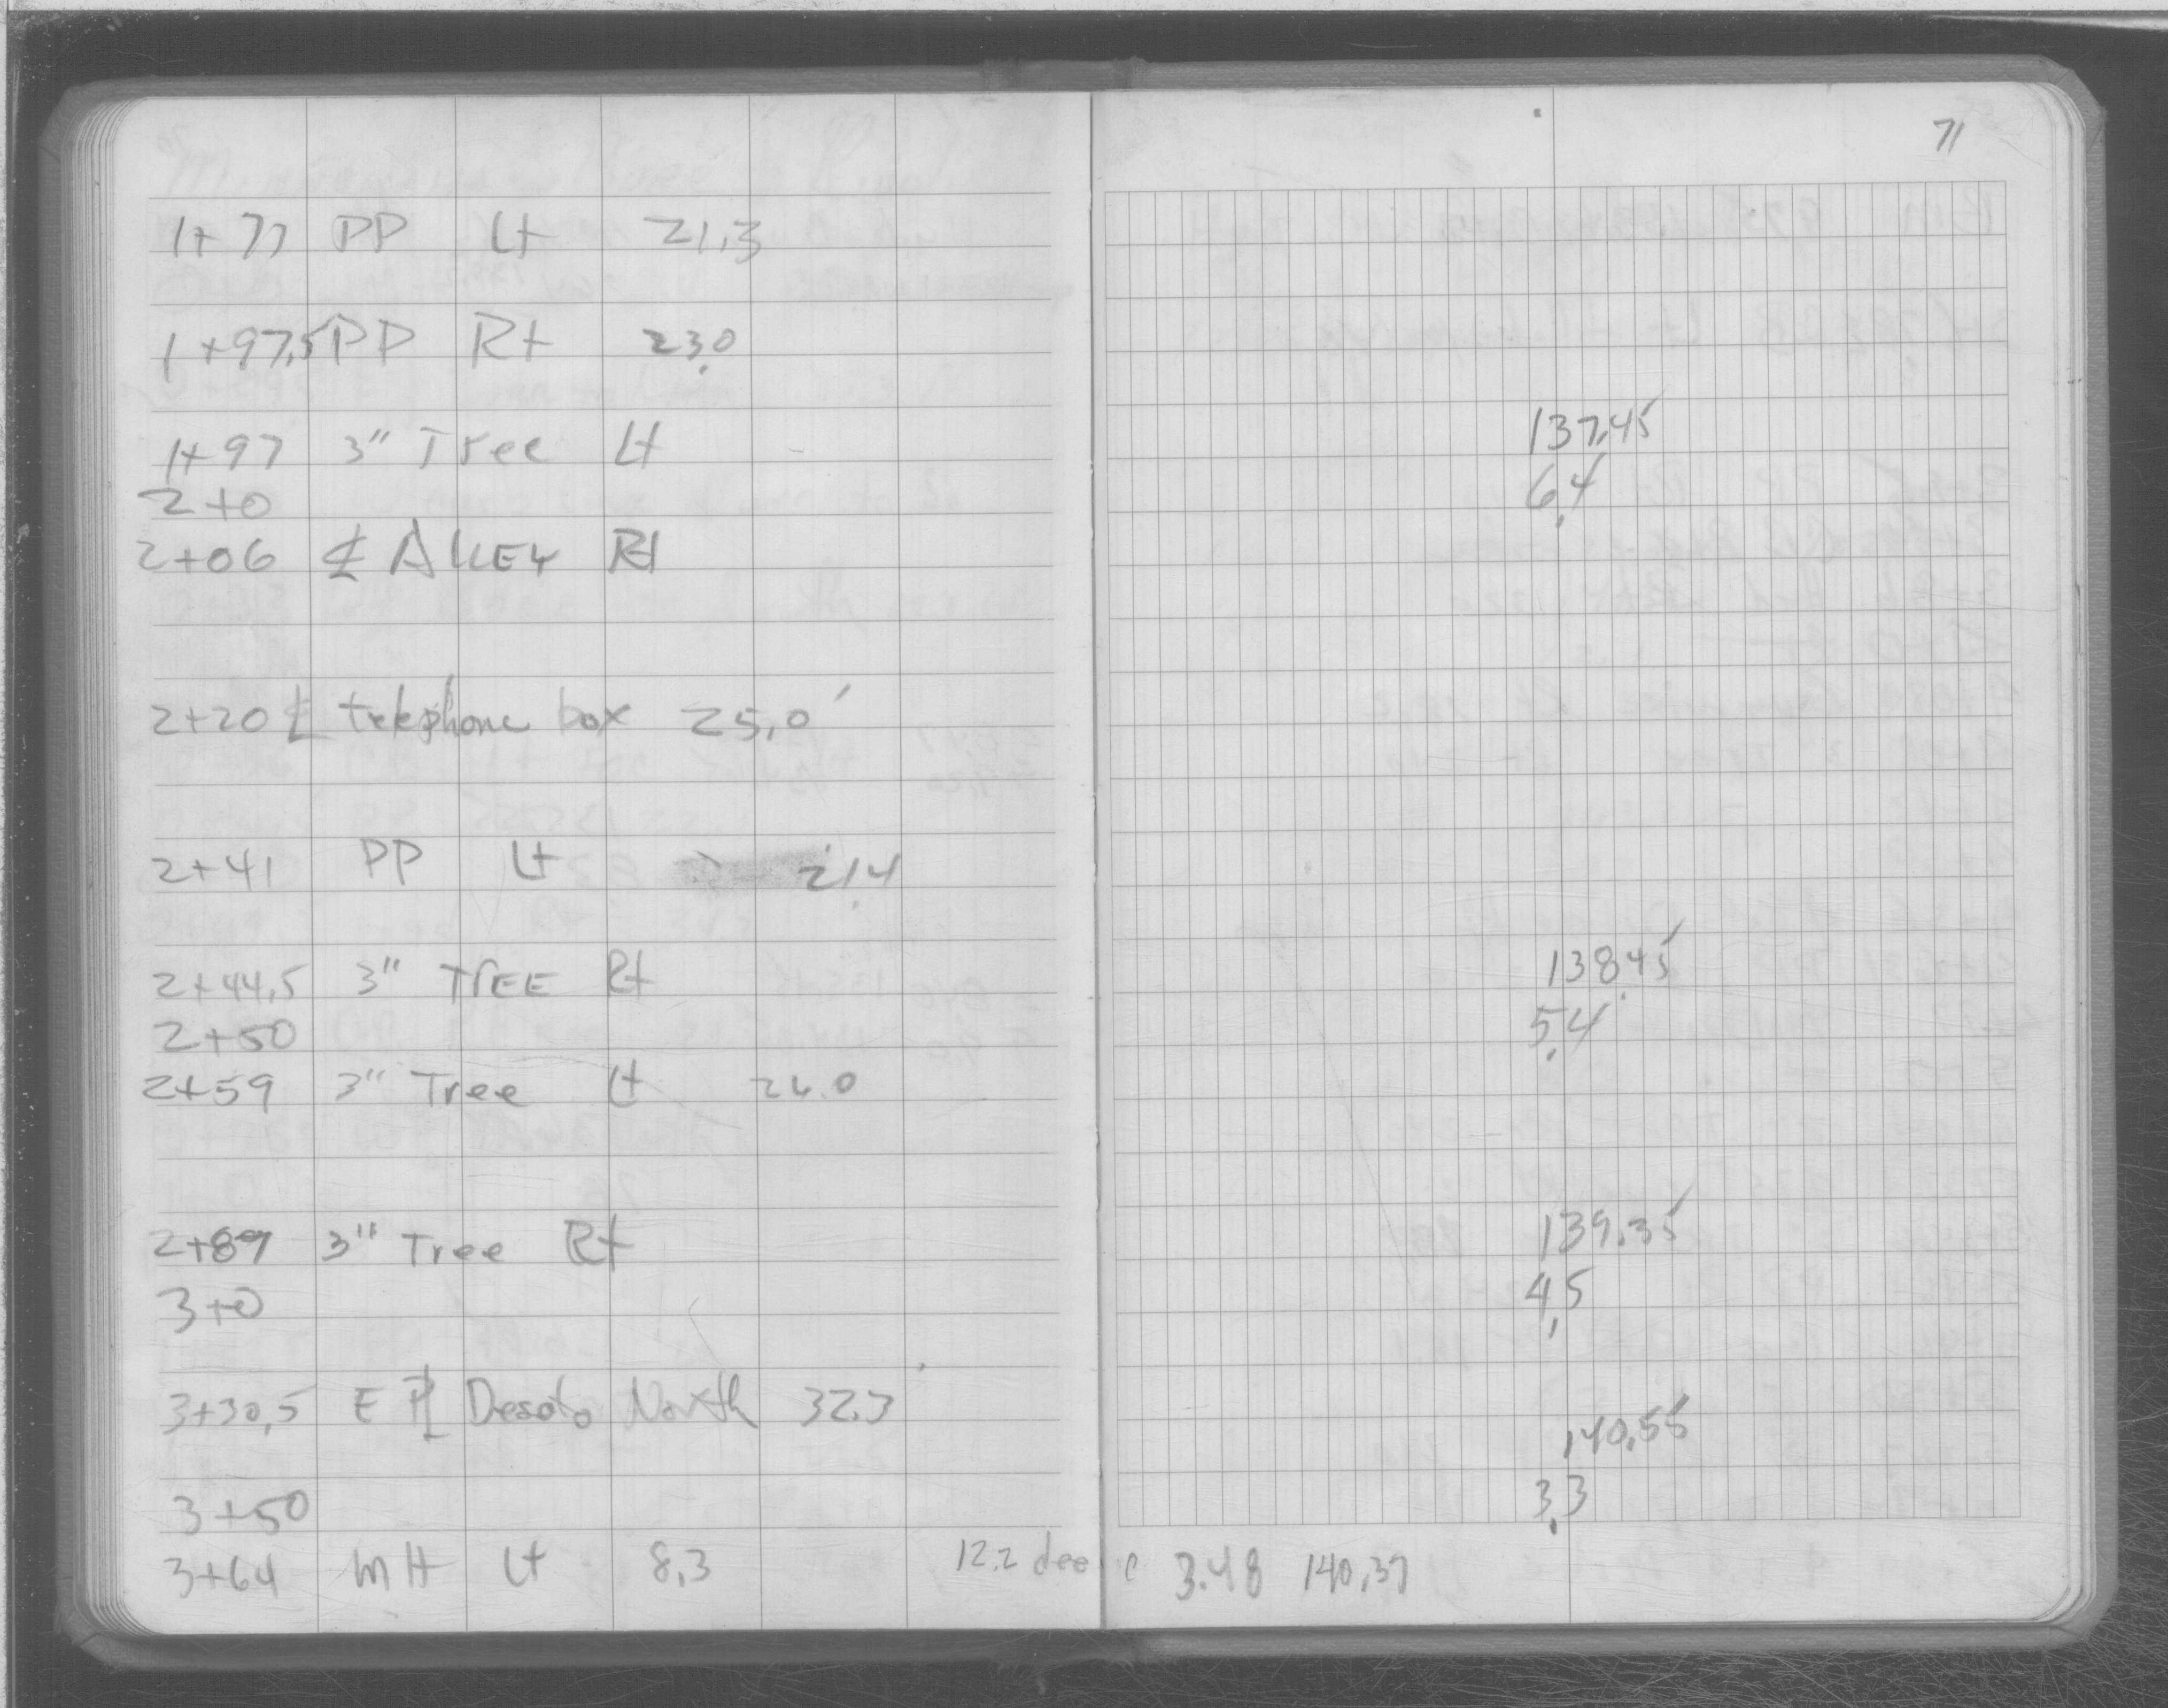 71
1+77 PP Lt 21.3
1+97.5 PP Rt 23.0
1+97 3" Tree Lt
137.45
2+0 6.4
2+06 ℄ Alley Rt
2+20 ℄ telephone box 25.0'
2+41 PP Lt 21.4
2+44.5 3" TREE Rt 138.45
2+50 5.4
2+59 3" Tree Lt
2+89 3" Tree Rt 139.35
3+0 4.5
3+30.5 E ⅊ Desoto North 32.3
140.55
3+50 3.3
3+64 MH Lt 8.3 12.2 deep 3.48 140.37